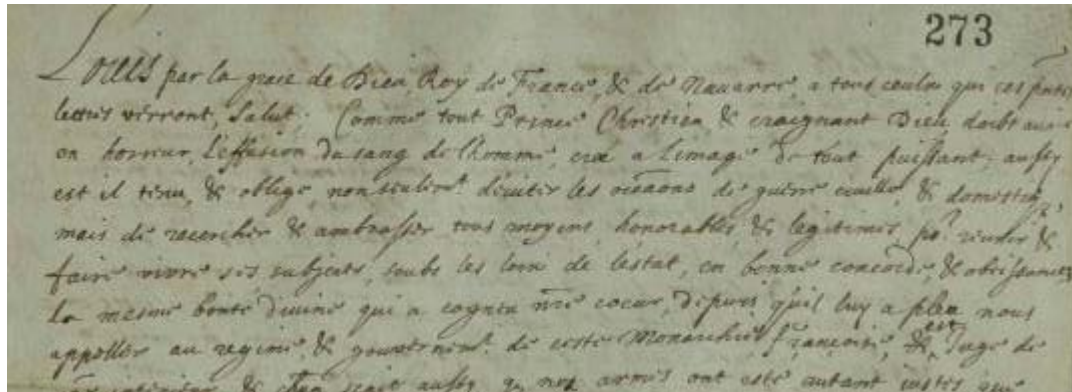 273
Louis par la grace de Dieu Roy de France, & de Navarre, a tous ceulx qui ces pntes
lettres verront, Salut. Comme tout Prince Chrestien & craignant Dieu, doibt avoir
en horreur, l'effusion du sang de l'homme, creé a l'image de tout puissant; aussy
est il tenu, & obligé, non seulemt. d'eviter les occaõns de guerre civille, & domestiq,
mais de recercher & ambrasser tous moyens, honorables, & legitimes, po.r réunir &
faire vivre ses subjects, soubs les loix de l'estat, en bonne concorde, & obeissance,
la mesme bonté divine qui a cogneu nre coeur, depuis qu'il luy a pleu nous
appeller au regime, & gouvernemt. de ceste Monarchie françoise, & est Juge de
& scait aussy q nos armes ont esté autant justes que